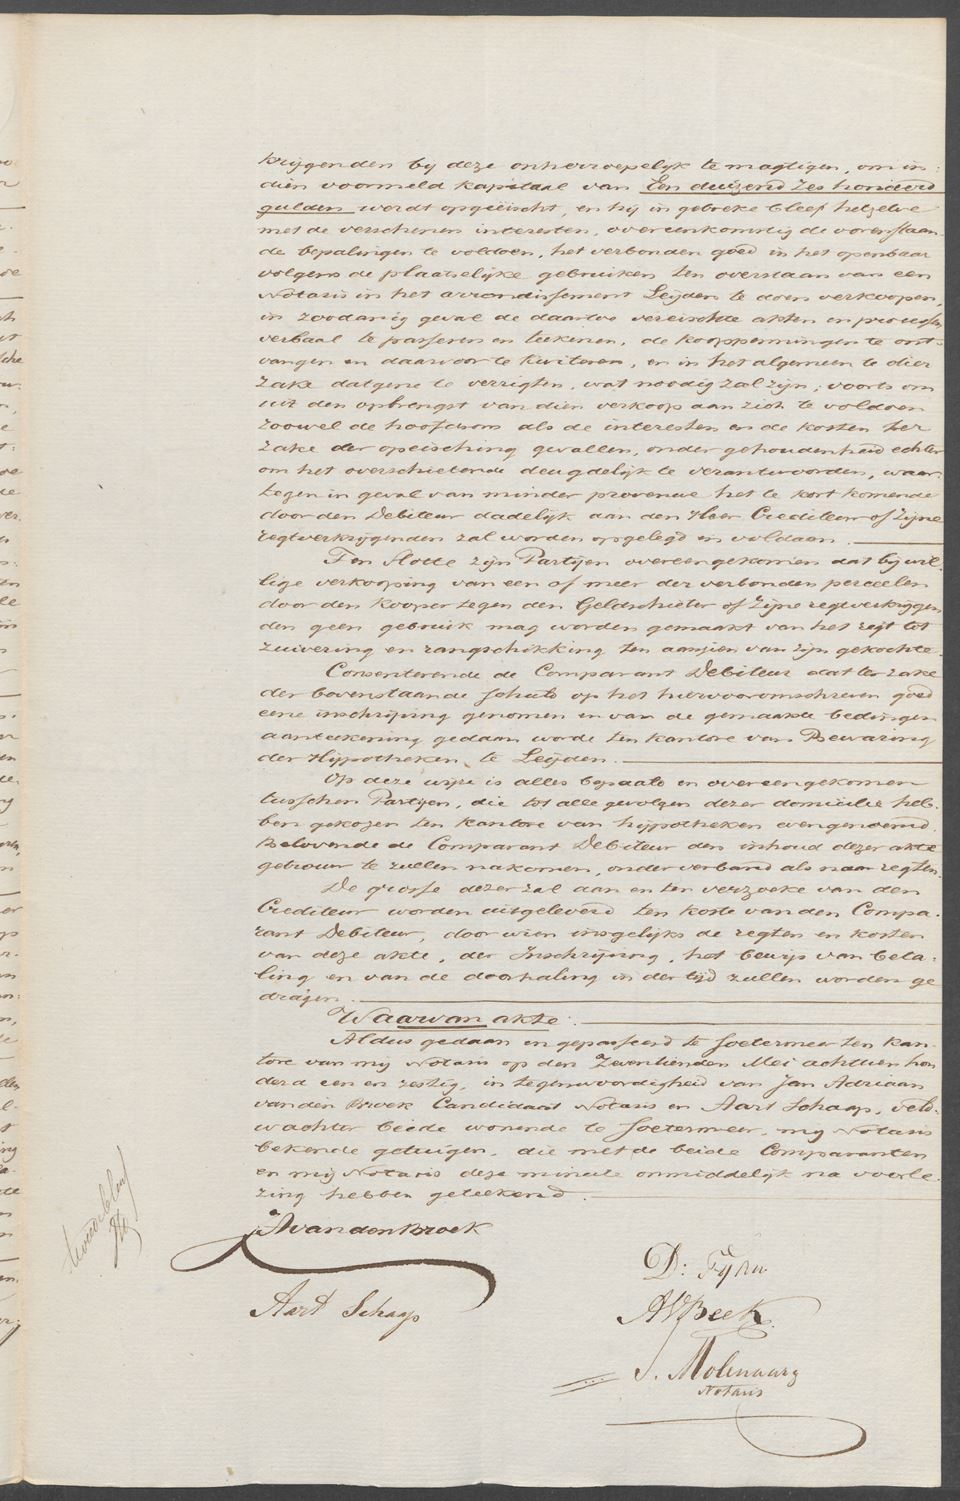 krijgenden bij deze onherroepelijk te magtigen, om in-
dien voormeld kapitaal van Een duizend zes honderd
gulden wordt opgeëischt, en hij in gebreke bleef hetzelve
met de verschenen interesten, overeenkomstig de vorenstaan-
de bepalingen te voldoen, het verbonden goed in het openbaar
volgens de plaatselijke gebruiken ten overstaan van een
Notaris in het arrondissement Leijden te doen verkoopen,
in zoodanig geval de daartoe vereischte akten en processen
verbaal te passeren en teekenen, de kooppenningen te ont-
vangen en daarvoor te kwiteren, en in het algemeen te dier
zake datgene te verrigten, wat noodig zal zijn; voorts om
uit den opbrengst van dien verkoop aan zich te voldoen
zoowel de hoofdsom als de interesten en de kosten ter
zake der opeisching gevallen, onder gehoudenheid echter
om het overschietende deugdelijk te verantwoorden, waar-
tegen in geval van minder provenue het te kort komende
door den Debiteur dadelijk aan den Heer Crediteur of zijne
regtverkrijgenden zal worden opgelegd en voldaan.
Ten slotte zijn Partijen overeengekomen dat bij wil-
lige verkooping van een of meer der verbonden perceelen
door den kooper tegen den Geldschieter of zijne regtverkrijgen
den geen gebruik mag worden gemaakt van het regt tot
zuivering en rangschikking ten aanzien van zijn gekochte.
Consenterende de Comparant Debiteur dat ter zake
der bovenstaande schuld op het hiervooromschreven goed
eene inschrijving genomen en van de gemaakte bedingen
aanteekening gedaan worde ten kantore van Bewaring
der Hijpotheken te Leijden.
Op deze wijze is alles bepaald en overeengekomen
tusschen Partijen, die tot alle gevolgen dezer domicilie heb-
ben gekozen ten kantore van hijpotheken evengenoemd.
Belovende de Comparant Debiteur den inhoud dezer akte
getrouw te zullen nakomen, onder verband als naar regten.
De grosse dezer zal aan en ten verzoeke van den
Crediteur worden uitgeleverd ten koste van den Compa-
rant Debiteur, door wien insgelijks de regten en kosten
van deze akte, der Inschrijving, het bewijs van beta-
ling en van de doorhaling in der tijd zullen worden ge
dragen.
Waarvan akte.
Aldus gedaan en gepasseerd te Soetermeer ten kan-
tore van mij Notaris op den Zeventienden Mei achttien hon
derd een en zestig, in tegenwoordigheid van Jan Adriaan
van den Broek Candidaat Notaris en Aart Schaap, veld-
wachter beide wonende te Soetermeer, mij Notaris
bekende getuigen, die met de beide Comparanten
en mij Notaris deze minute onmiddelijk na voorle
zing hebben geteekend.
JAvandenBroek
D:
Aart Schaap
J. Molenaar
Notaris